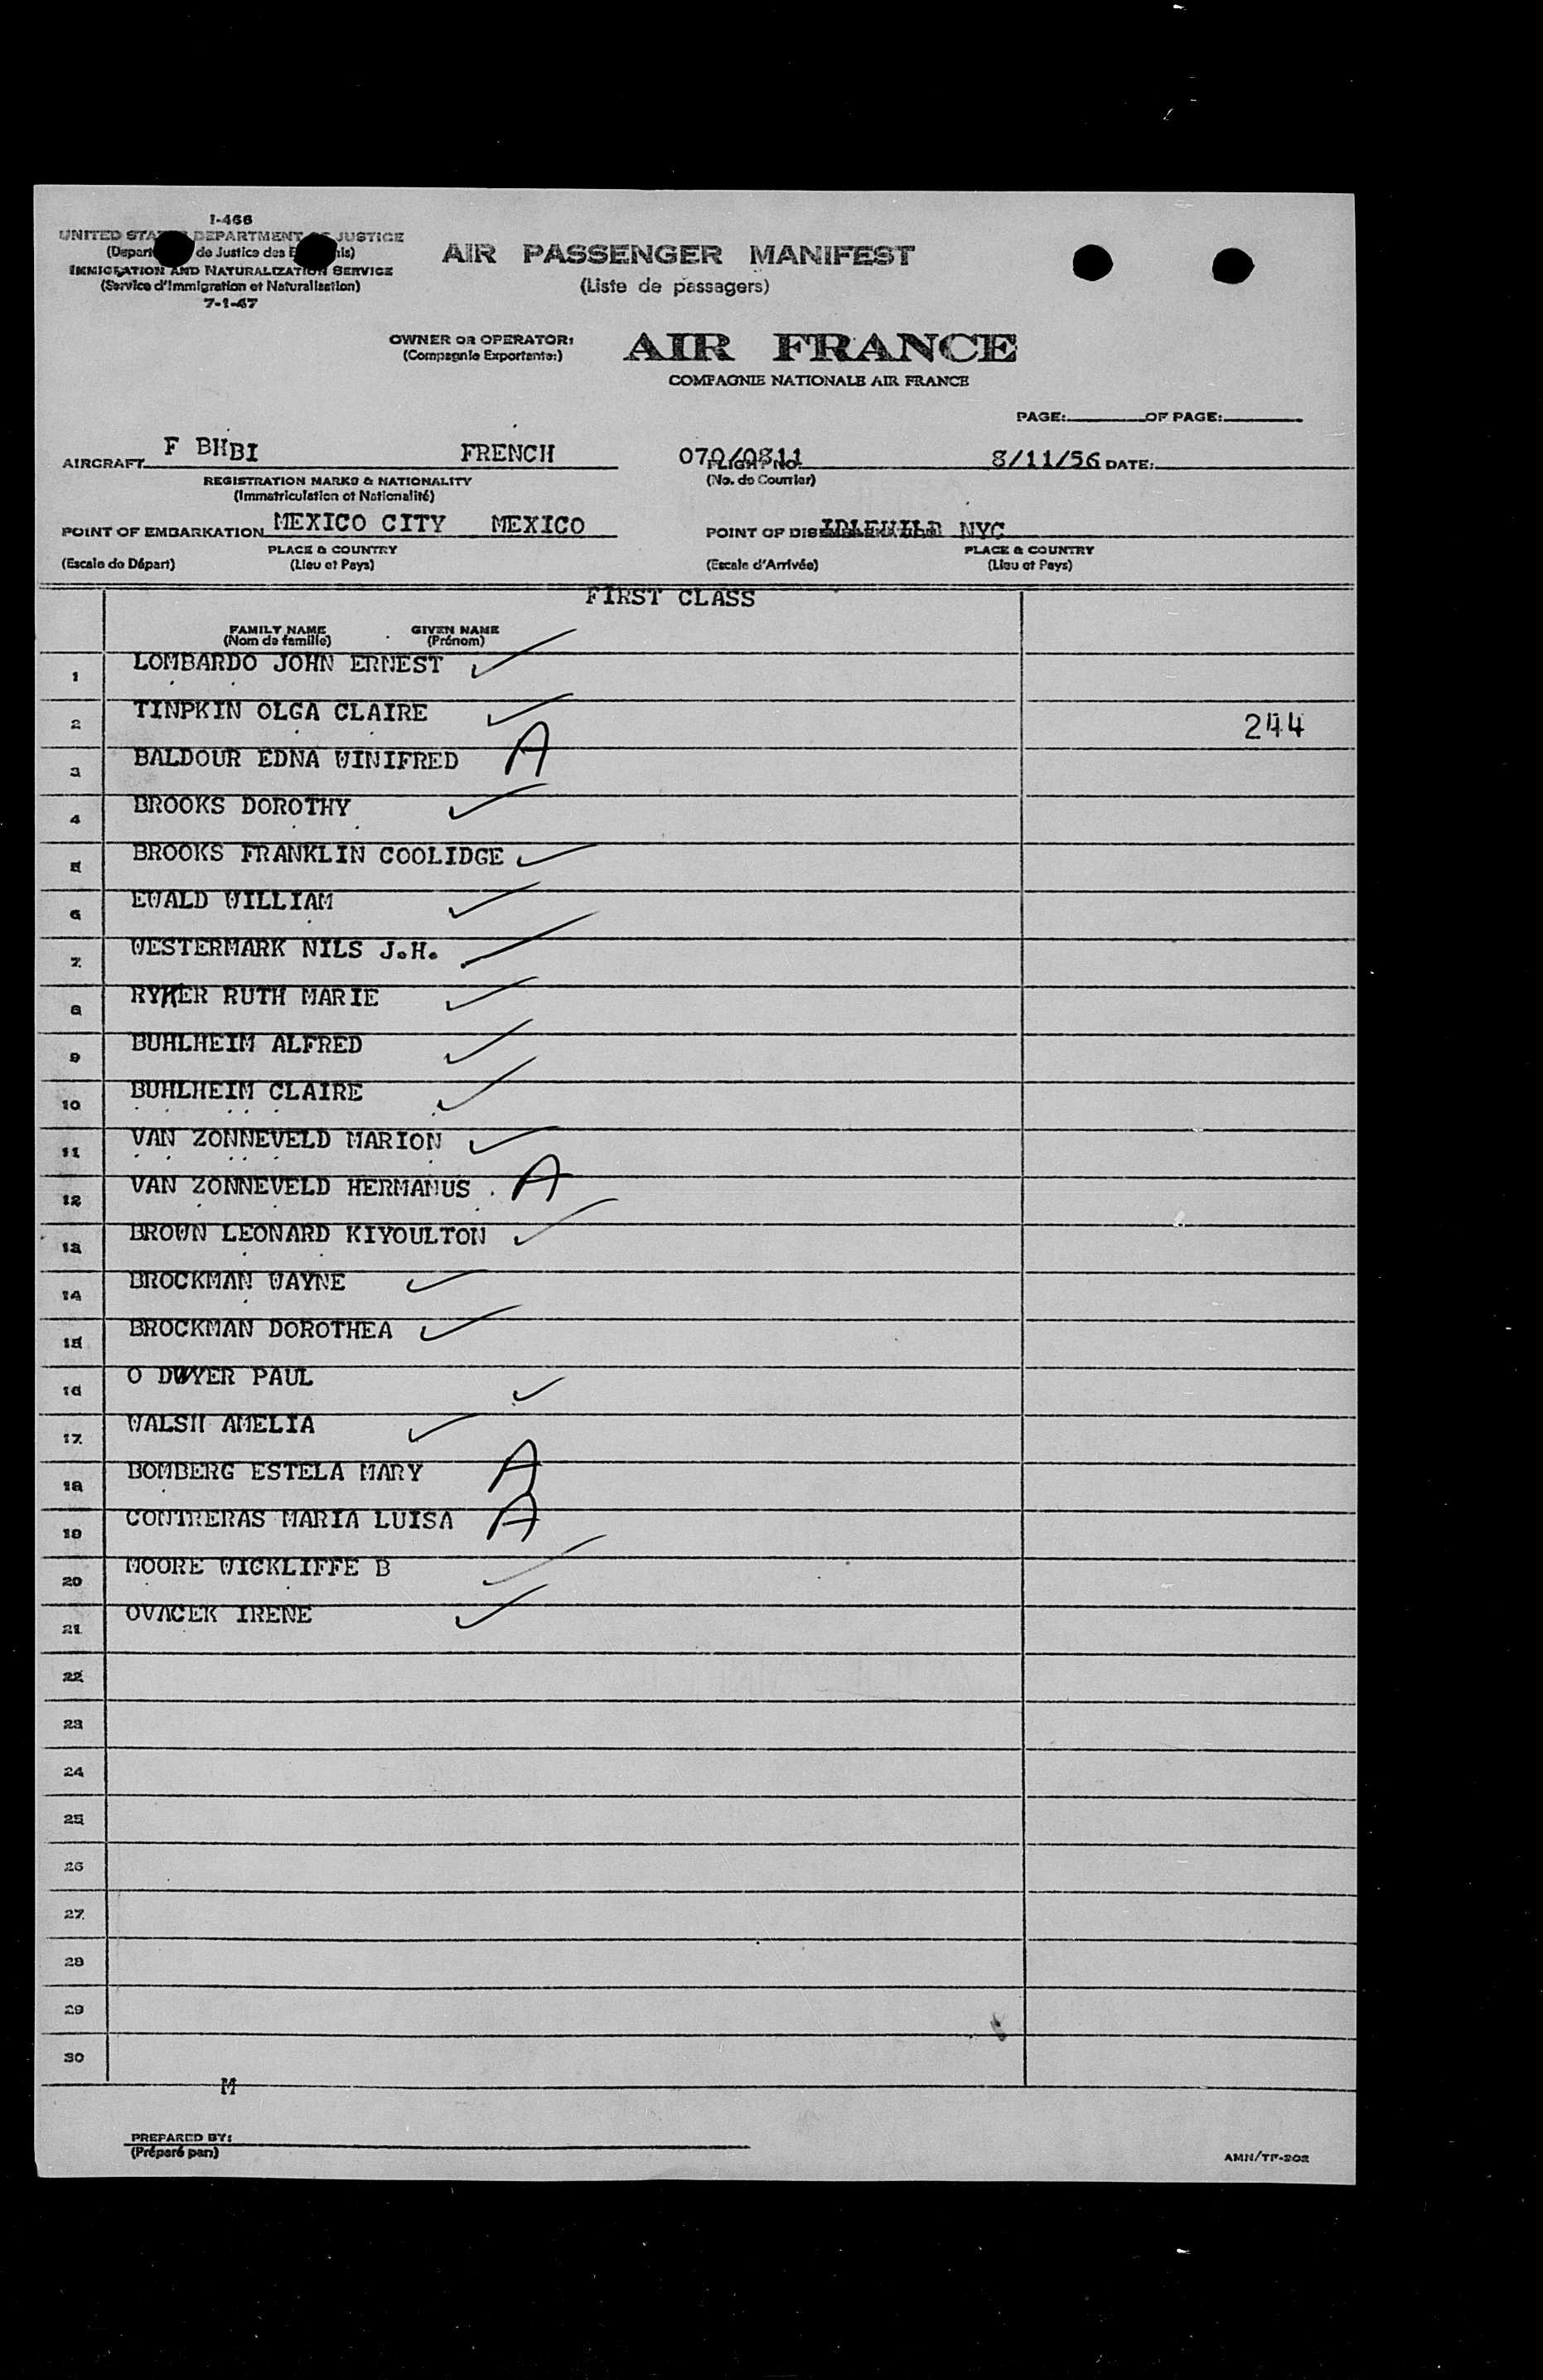 I-466
UNITED STATES DEPARTMENT OF JUSTICE
(Depart de Justice des nis)
IMMIGRATION AND NATURALIZATION SERVICE
(Service d'Immigration et Naturalisation)
7-1-47
AIR PASSENGER MANIFEST
(Liste de passagers)
OWNER OR OPERATOR:
(Compagnie Exportante:)
AIR FRANCE
COMPAGNIE NATIONALE AIR FRANCE
PAGE: OF PAGE:
AIRCRAFT F BHBI FRENCH 070/0811 FLIGHT NO. 8/11/56 DATE:
REGISTRATION MARKS & NATIONALITY (No. de Courrier)
(Immatriculation et Nationalité)
POINT OF EMBARKATION MEXICO CITY MEXICO POINT OF DISEMBARKATION IDLEWILD NYC
PLACE & COUNTRY PLACE & COUNTRY
(Escale de Départ) (Lieu et Pays) (Escale d'Arrivée) (Lieu et Pays)
FIRST CLASS
FAMILY NAME GIVEN NAME
(Nom de famille) (Prénom)
1 LOMBARDO JOHN ERNEST ✓
2 TINPKIN OLGA CLAIRE ✓ 244
3 BALDOUR EDNA WINIFRED A
4 BROOKS DOROTHY ✓
5 BROOKS FRANKLIN COOLIDGE ✓
6 EWALD WILLIAM ✓
7 WESTERMARK NILS J.H. ✓
8 RYKER RUTH MARIE ✓
9 BUHLHEIM ALFRED ✓
10 BUHLHEIM CLAIRE ✓
11 VAN ZONNEVELD MARION ✓
12 VAN ZONNEVELD HERMANUS A
13 BROWN LEONARD KIYOULTON ✓
14 BROCKMAN WAYNE ✓
15 BROCKMAN DOROTHEA ✓
16 O DWYER PAUL ✓
17 WALSH AMELIA ✓
18 BOMBERG ESTELA MARY A
19 CONTRERAS MARIA LUISA A
20 MOORE WICKLIFFE B ✓
21 OVACEK IRENE ✓
22
23
24
25
26
27
28
29
30
M
PREPARED BY:
(Préparé par:)
AMN/TF-202